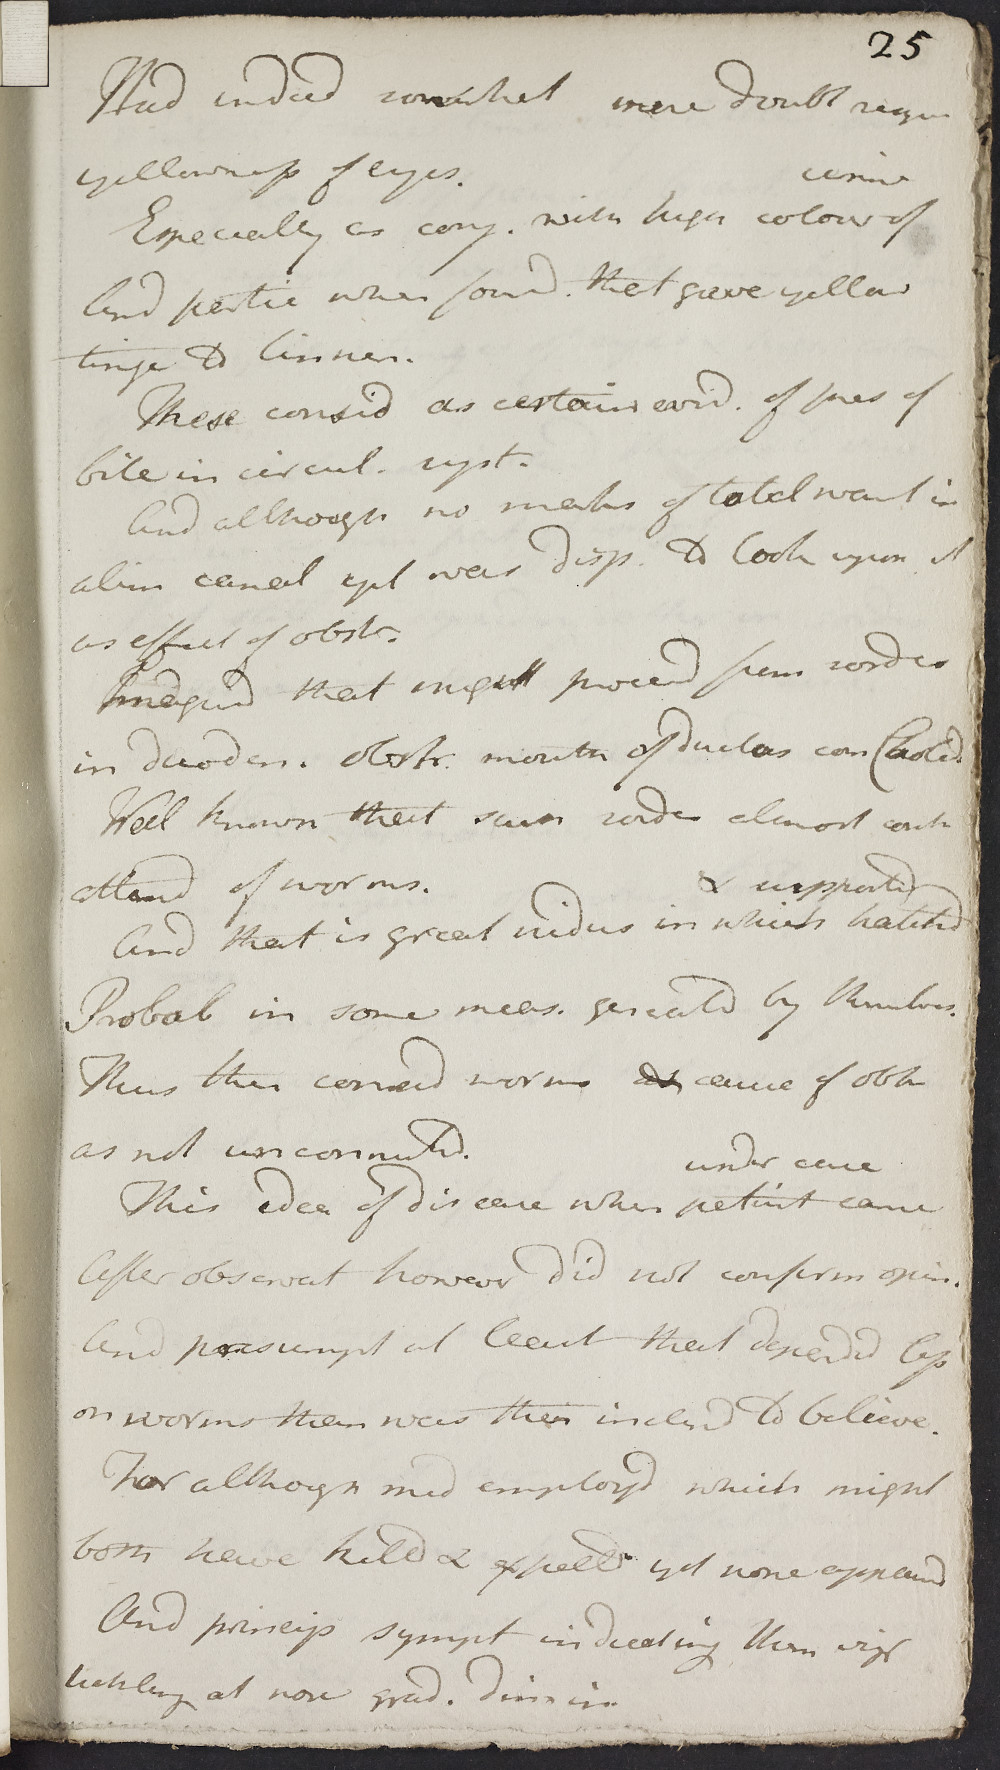 25
Had indeed somewhat more doubt regar
yellowness of eyes.
urine
Especially as conj. with high colour of
And partic when found that gave yellow
tinge to linnen.
These consid as certain evid. of pres of
bile in circul. syst.
And although no marks of total want in
alim canal yet was disp. to look upon it
as effect of obstr.
Imagind that might proceed from sordes
in duoden. obstr. mouth of ductus com Choled.
Well known that such sordes almost const
attend of worms.
& supported
And that is great nidus in which hatchd
Probab in some meas. generatd by themselves.
Thus then considd worms as cause of obstr
as not unconnectd.
under care
This idea of disease when patient came
After observat however did not confirm opin.
And presumpt at least that depended less
on worms than was then inclind to believe.
For although med employd which might
both have killd & expelld yet none appeard
And princip sympt indicating them viz
tickling at nose grad. dimin